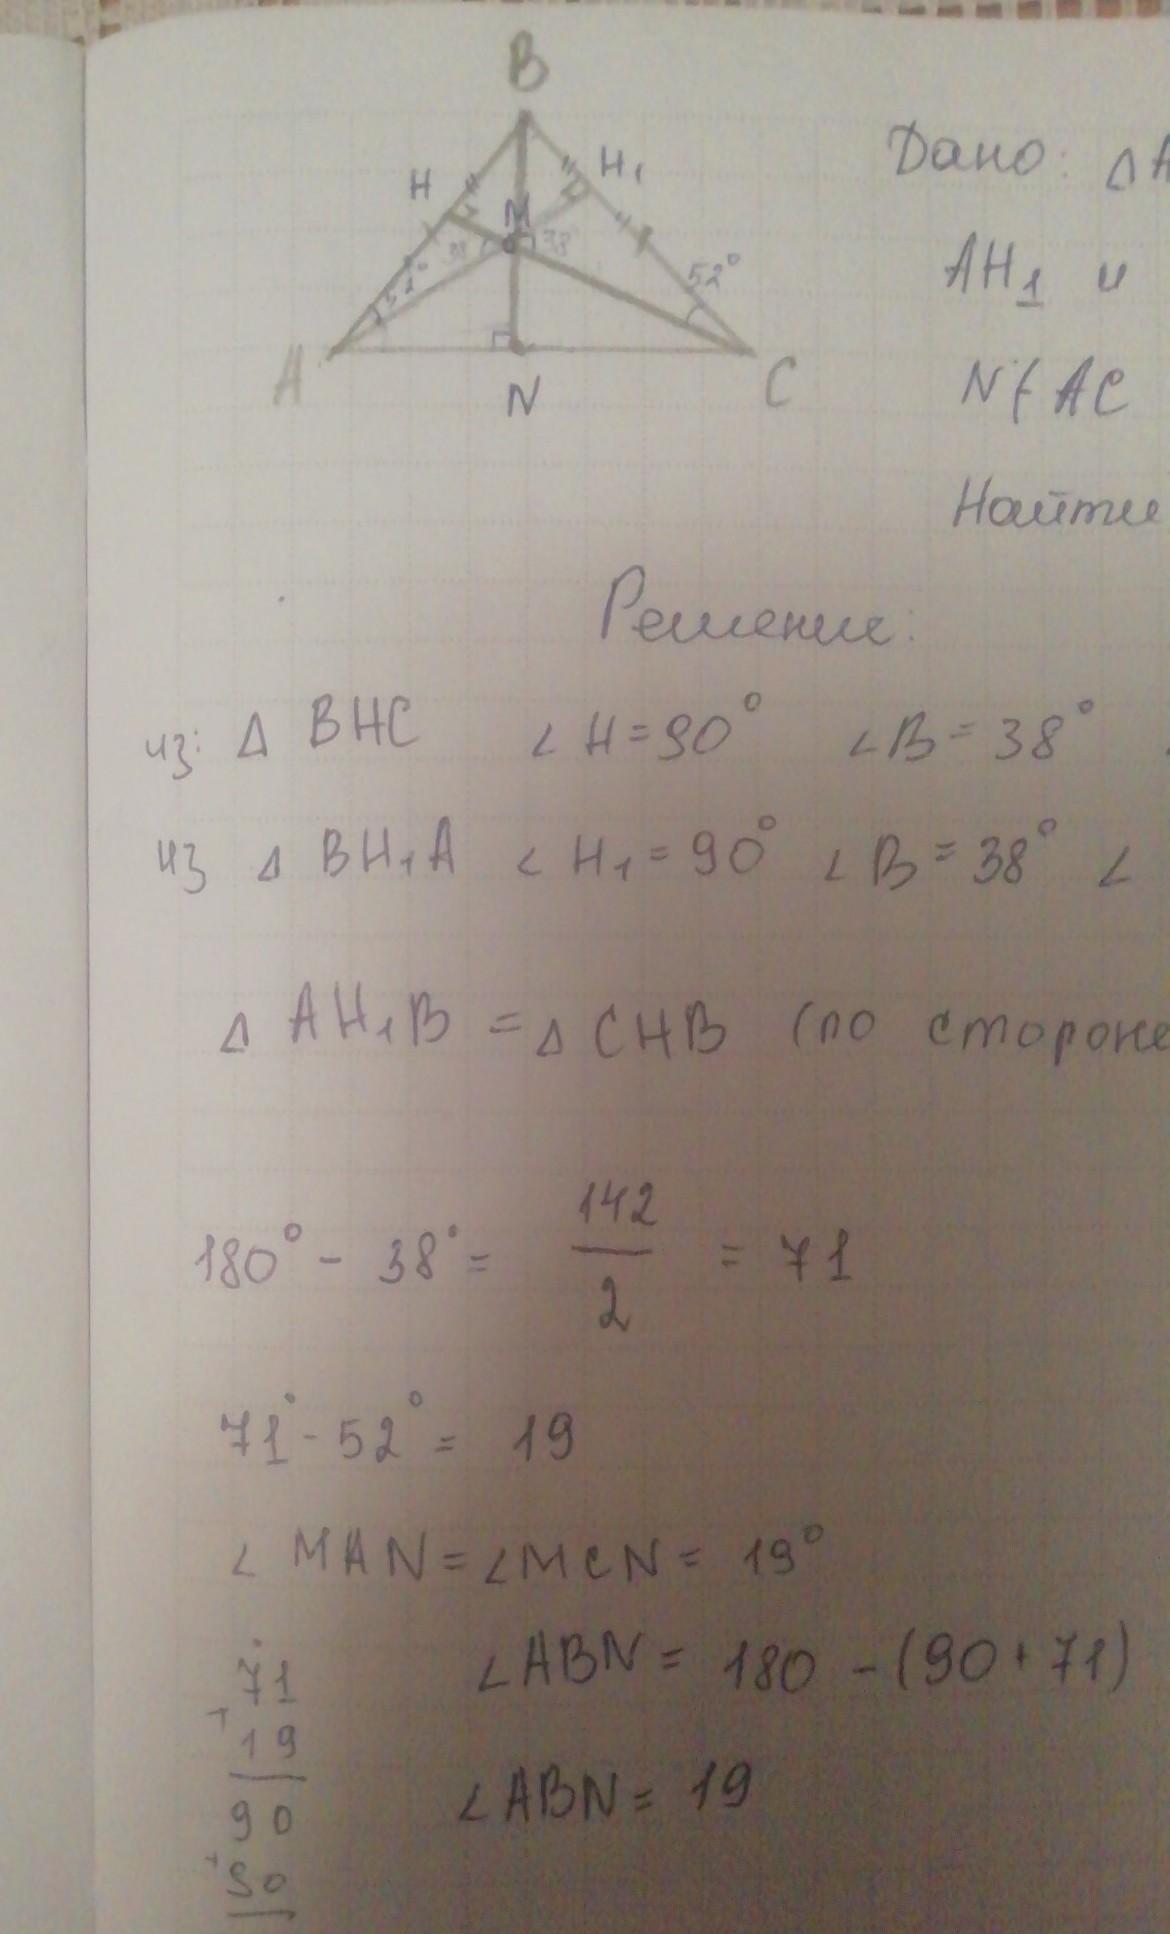 B
H
H₁
M
38
38
52°
52°
A
N
C
Дано: ∆ A
AH₁ и
N ∈ AC
Найти
Решение:
из: ∆ BHC ∠H = 90° ∠B = 38°
из ∆ BH₁A ∠H₁ = 90° ∠B = 38° ∠
∆ AH₁B = ∆ CHB (по стороне
180° - 38° = 142/2 = 71
71° - 52° = 19
∠ MAN = ∠MCN = 19°
∠ABN = 180 - (90 + 71)
71
+
19
90
∠ABN = 19
+
90